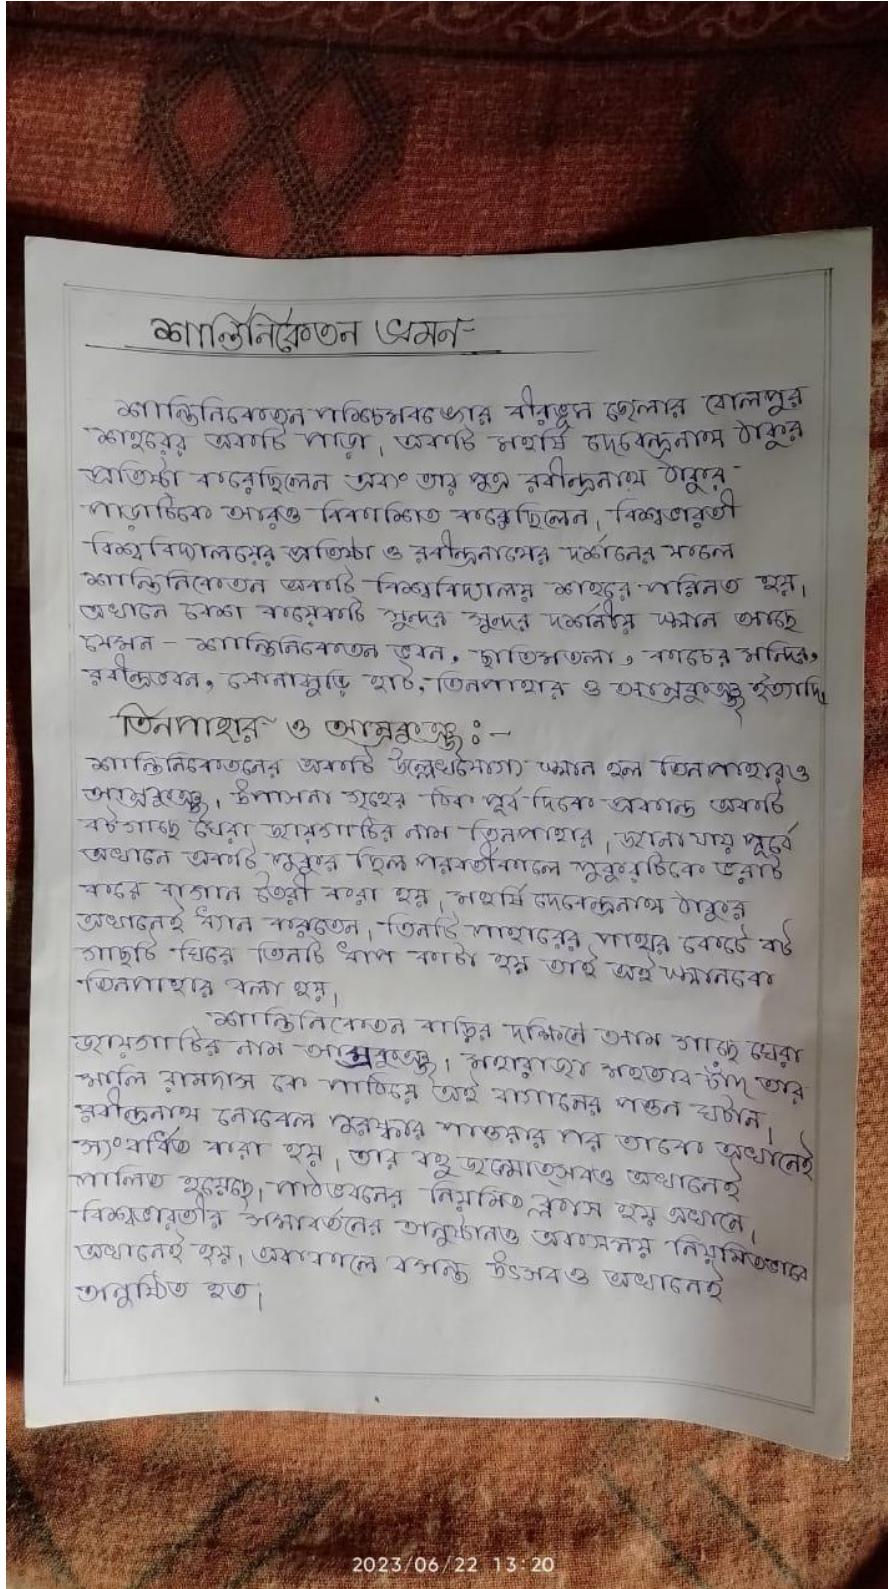 শান্তিনিকেতন ভ্রমন
শান্তিনিকেতন পশ্চিমবঙ্গের বীরভূম জেলার বোলপুর
শহরের একটি পাড়া। একটি মহর্ষি দেবেন্দ্রনাথ ঠাকুর
প্রতিষ্ঠা করেছিলেন এবং তার পুত্র রবীন্দ্রনাথ ঠাকুর
পাড়াটিকে আরও বিকাশিত করেছিলেন। বিশ্বভারতী
বিশ্ববিদ্যালয়ের প্রতিষ্ঠা ও রবীন্দ্রনাথের দর্শনের ফলে
শান্তিনিকেতন একটি বিশ্ববিদ্যালয় শহরে পরিনত হয়।
এখানে বেশ কয়েকটি সুন্দর সুন্দর দর্শনীয় স্থান আছে
যেমন - শান্তিনিকেতন ভবন, ছাতিমতলা, কাচের মন্দির,
রবীন্দ্রভবন, সোনাঝুড়ি হাট, তিনপাহার ও আম্রকুঞ্জ ইত্যাদি।
তিনপাহার ও আম্রকুঞ্জ :-
শান্তিনিকেতনের একটি উল্লেখযোগ্য স্থান হল তিনপাহার ও
আম্রকুঞ্জ। উপাসনা গৃহের ঠিক পূর্ব দিকে প্রকান্ড একটি
বটগাছে ঘেরা জায়গাটির নাম তিনপাহার। জানা যায় পূর্বে
এখানে একটি পুকুর ছিল পরবর্তীকালে পুকুরটিকে ভরাট
করে বাগান তৈরী করা হয়। মহর্ষি দেবেন্দ্রনাথ ঠাকুর
এখানেই ধ্যান করতেন। তিনটি পাহারের পাথর কেটে বট
গাছটি ঘিরে তিনটি ধাপ কাটা হয় তাই এই স্থানকে
তিনপাহার বলা হয়।
শান্তিনিকেতন বাড়ির দক্ষিনে আম গাছে ঘেরা
জায়গাটির নাম আম্রকুঞ্জ। মহারাজা মহতাব চাঁদ তার
মালি রামদাস কে পাঠিয়ে এই বাগানের পত্তন ঘটান।
রবীন্দ্রনাথ নোবেল পুরস্কার পাওয়ার পর তাকে এখানেই
সংবর্ধিত করা হয়। তার বহু জন্মোত্সবও এখানেই
পালিত হয়েছে। পাঠভবনের নিয়মিত ক্লাস হয় এখানে।
বিশ্বভারতীর সমাবর্তনের অনুষ্ঠানও একসময় নিয়মিতভাবে
এখানেই হয়। এককালে বসন্ত উৎসবও এখানেই
অনুষ্ঠিত হত।
2023/06/22 13:20